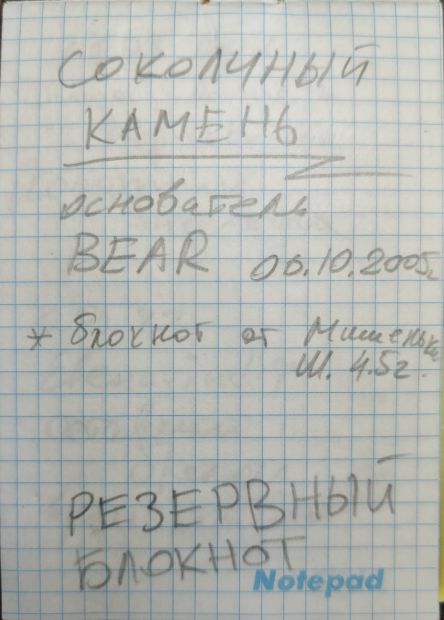 СОКОЛИНЫЙ
КАМЕНЬ
основатель
BEAR 06.10.2005г
* блокнот от Мишеньки
Ш. 4.5г.
РЕЗЕРВНЫЙ
БЛОКНОТ
Notepad